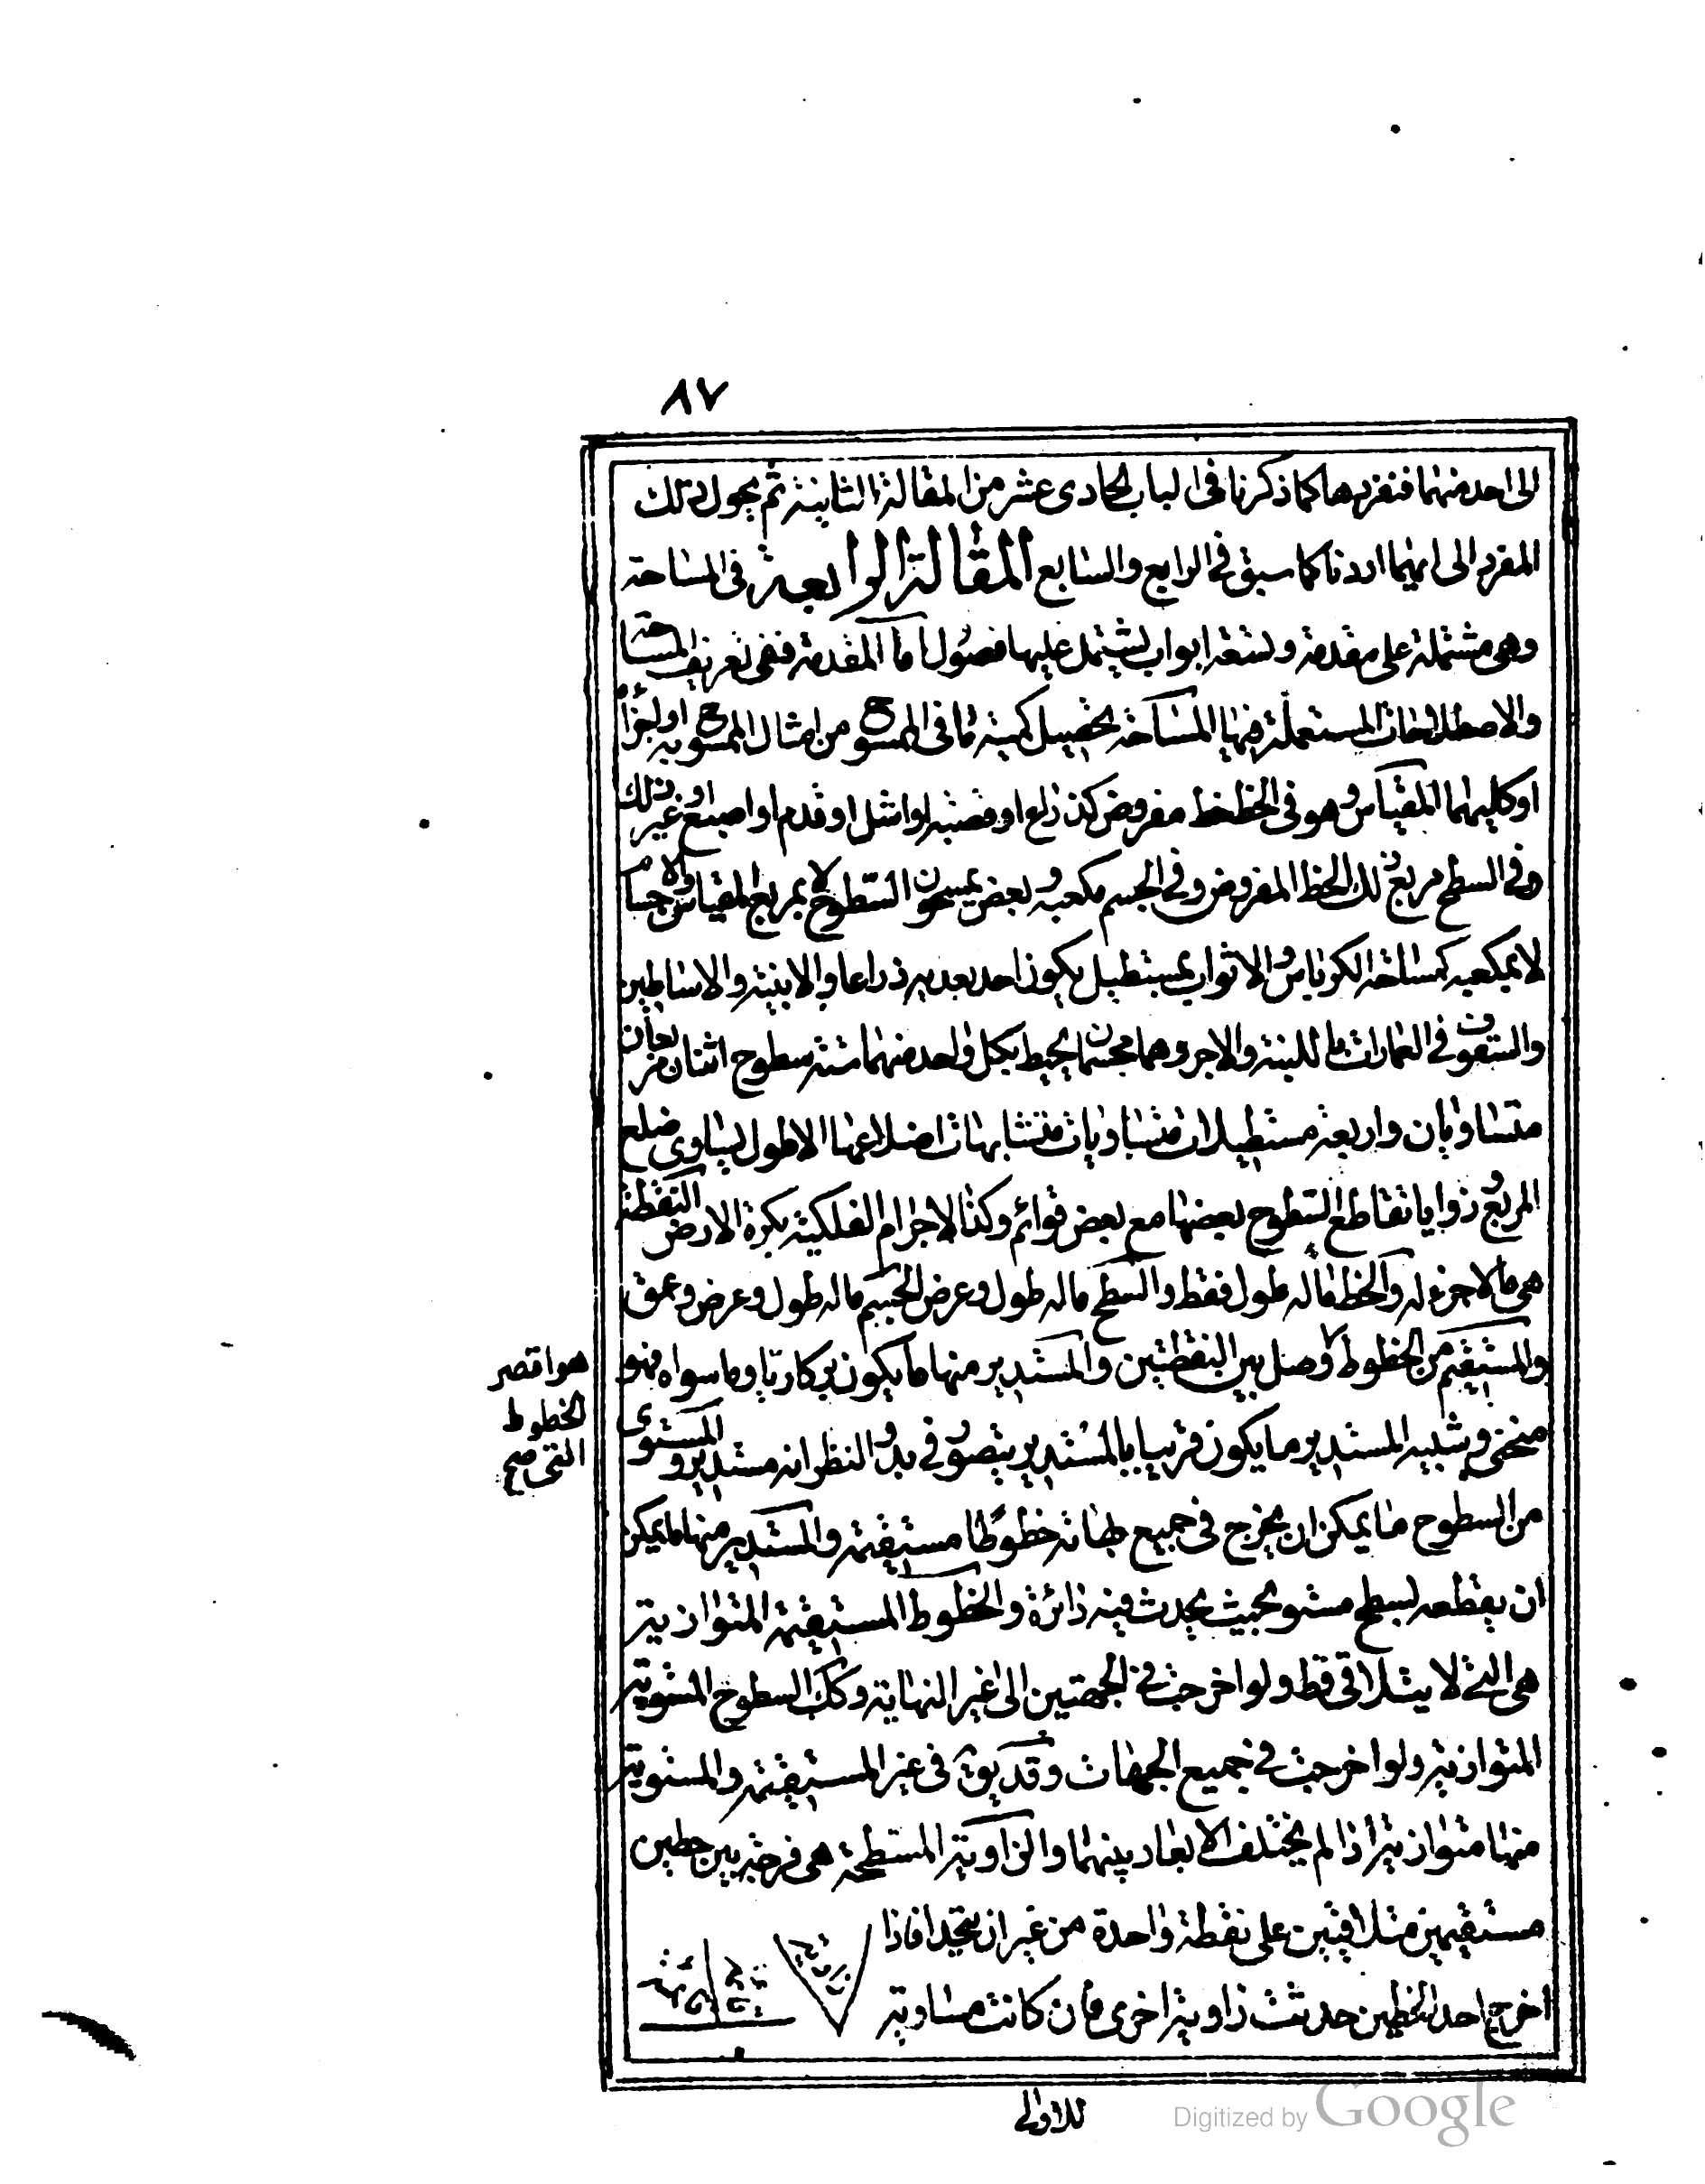 ٨٧
الى احد منهما فنفردها كما ذكرنا فى الباب الحادى عشر من المقالة الثانية ثم يحول ذلك
المفرد الى ايهما اردنا كما سبق فى الرابع والسابع المقالة الرابعة فى المساحة
وهى مشتملة على مقدمة وتسعة ابواب يشتمل عليها فصول اما المقدمة ففى تعريف المساحة
والاصطلاحات المستعملة فيها المساحة تحصيل كمية ما فى الممسوح من امثال الممسوح به او اجزائه
او كليهما المقياس وهو فى الخط خط مفروض كذراع او قصبة او اشل او قدم او اصبع او غير ذلك
وفى السطح مربع ذلك الخط المفروض وفى الجسم مكعبه وبعض يمسحون السطوح لا بمربع المقياس والاجسام
لا بمكعبه كمساحة الكرباس والاثواب بمستطيل يكون احد بعديه ذراعا والابنية والاساطين
والسقوف فى العمارات باللبنة والاجر وهما مجسمان يحيط بكل واحد منهما ستة سطوح اثنان مربعان
متساويان واربعة مستطيلات متساويات متشابهات اضلاعها الاطول يساوى ضلع
المربع وزوايا تقاطع السطوح بعضها مع بعض قوائم وكذا الاجرام الفلكية بكرة الارض النقطة
هى ما لا جزء له والخط ما له طول فقط والسطح ما له طول وعرض الجسم ما له طول وعرض وعمق
والمستقيم من الخطوط وصل بين النقطتين والمستدير منها ما يكون بركاريا وما سواه فهو
هو اقصر
الخطوط
التى صح
منحنى وشبيه المستدير ما يكون قريبا بالمستدير يتصور فى بدو النظر انه مستدير والمستوى
من السطوح ما يمكن ان يخرج فى جميع جهاته خطوطا مستقيمة والمستدير منها ما يمكن
ان يقطعه بسطح مستو بحيث يحدث فيه دائرة والخطوط المستقيمة المتوازية
هى التى لا يتلاقى قط ولو اخرجت فى الجهتين الى غير النهاية وكك السطوح المستوية
المتوازية ولو اخرجت فى جميع الجهات وقد يق فى غير المستقيمة والمستوية
منها متوازية اذا لم يختلف الابعاد بينهما والزاوية المسطحة هى فرجة بين خطين
مستقيمين متلاقيين على نقطة واحدة من غير ان يتحدا فاذا
اخرج احد الخطين حدثت زاوية اخرى فان كانت مساوية
زاوية
قائمة
قائمة
للاولى
Digitized by Google